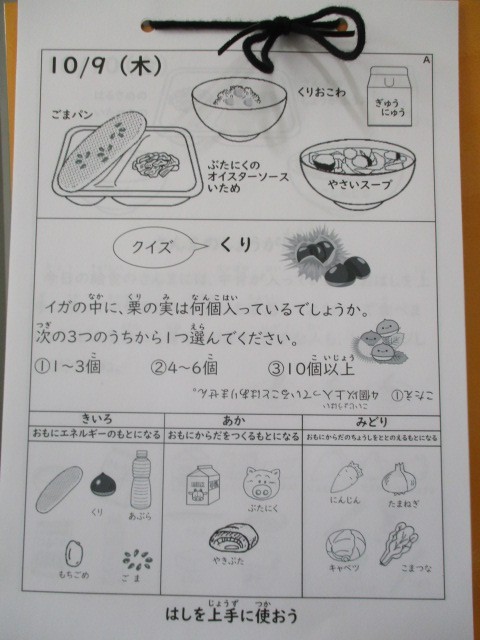 10/9（木）
A
くりおこわ
ぎゅう
にゅう
ごまパン
ぶたにくの
オイスターソース
いため
やさいスープ
クイズ
くり
イガの中に、栗の実は何個入っているでしょうか。
なか くり み なんこはい
次の3つのうちから1つ選んでください。
つぎ えら
①1～3個 ②4～6個 ③10個以上
こ こ こ いじょう
こたえ① 4個以上入っていることはありません。
こいじょうはい
きいろ あか みどり
おもにエネルギーのもとになる おもにからだをつくるもとになる おもにからだのちょうしをととのえるもとになる
くり
あぶら
ぶたにく
にんじん
たまねぎ
もちごめ
ごま
やきぶた
キャベツ
こまつな
はしを上手に使おう
じょうず つか